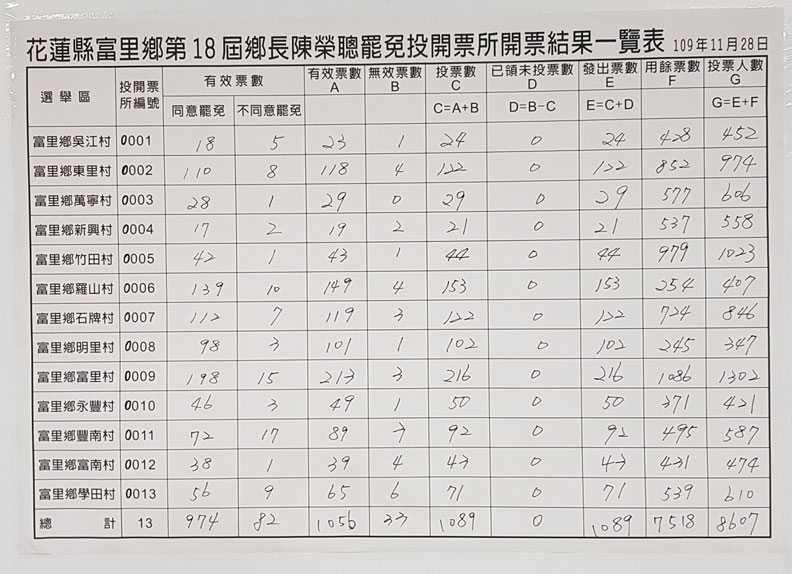 花蓮縣富里鄉第18屆鄉長陳榮聰罷免投開票所開票結果一覽表 109年11月28日
選舉區 投開票所編號 有效票數 有效票數 A 無效票數 B 投票數 C 已領未投票數 D 發出票數 E 用餘票數 F 投票人數 G
同意罷免 不同意罷免 C=A+B D=B-C E=C+D G=E+F
富里鄉吳江村 0001 18 5 23 1 24 0 24 428 452
富里鄉東里村 0002 110 8 118 4 122 0 122 852 974
富里鄉萬寧村 0003 28 1 29 0 29 0 29 577 606
富里鄉新興村 0004 17 2 19 2 21 0 21 537 558
富里鄉竹田村 0005 42 1 43 1 44 0 44 979 1023
富里鄉羅山村 0006 139 10 149 4 153 0 153 254 407
富里鄉石牌村 0007 112 7 119 3 122 0 122 724 846
富里鄉明里村 0008 98 3 101 1 102 0 102 245 347
富里鄉富里村 0009 198 15 213 3 216 0 216 1086 1302
富里鄉永豐村 0010 46 3 49 1 50 0 50 371 421
富里鄉豐南村 0011 72 17 89 3 92 0 92 495 587
富里鄉富南村 0012 38 1 39 4 43 0 43 431 474
富里鄉學田村 0013 56 9 65 6 71 0 71 539 610
總計 13 974 82 1056 33 1089 0 1089 7518 8607